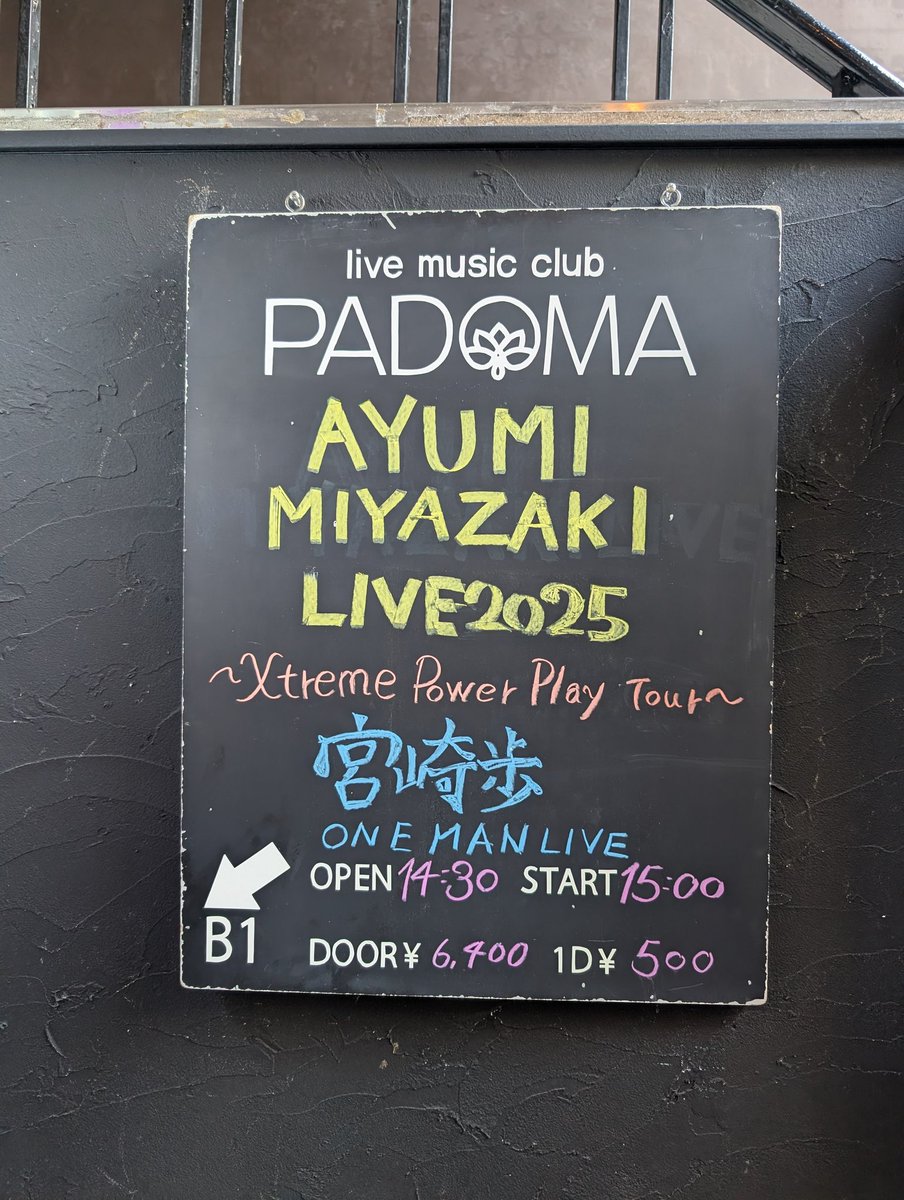 live music club
PADOMA
AYUMI
MIYAZAKI
LIVE2025
~Xtreme Power Play Tour~
宮崎歩
ONE MAN LIVE
OPEN 14:30 START 15:00
B1
DOOR¥ 6,400 1D¥ 500